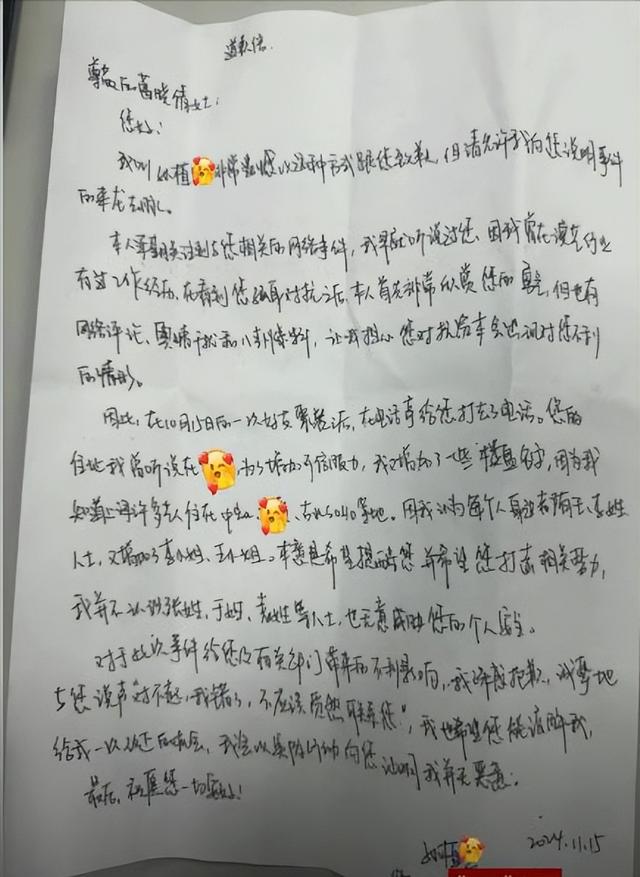 道歉信
尊敬的葛晓倩女士:
您好!
我叫 植 非常 以这种方式跟您致歉,但请允许我向您说明事件
的来龙去脉。
本人 关注到与您相关的网络事件,我早就听说过您,因我曾在
有过工作经历,在看到您 对抗之后,本人首先非常欣赏您的 ,但也有
网络评论、舆情 和八卦 料,让我担心您对 会出现对您不利
的情形。
因此,在10月15日的一次好友聚餐之后,在电话亭给您打去了电话。您的
住址我曾听说在 ,为了增加可信服力,我又增加了一些楼盘名字,因为我
知道上海许多人住在中 、 SOHO等地。因我认为每个人身边都有王、李姓
人士,又增加了李小姐、王小姐。本意是希望提醒您并希望您打击相关势力,
我并不认识张姓、于姓、袁姓等人士,也无意威胁您的个人安全。
对于此次事件给您及有关部门带来的不利影响,我深感抱歉,诚挚地
与您说声“对不起,我错了,不应该贸然联系您”,我也希望您能谅解我,
给我一次改正的机会,我会以实际行动向您证明我并无恶意。
最后,祝愿您一切安好!
2024.11.15